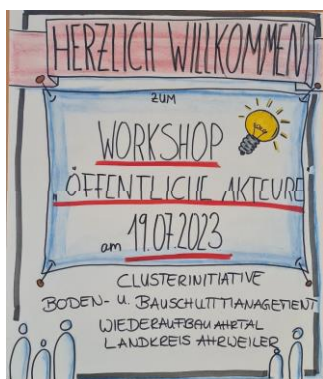 HERZLICH WILLKOMMEN
ZUM
WORKSHOP
„ÖFFENTLICHE AKTEURE
am 19.07.2023
CLUSTERINITIATIVE
BODEN- U. BAUSCHUTTMANAGEMENT
WIEDERAUFBAU AHRTAL
LANDKREIS AHRWEILER